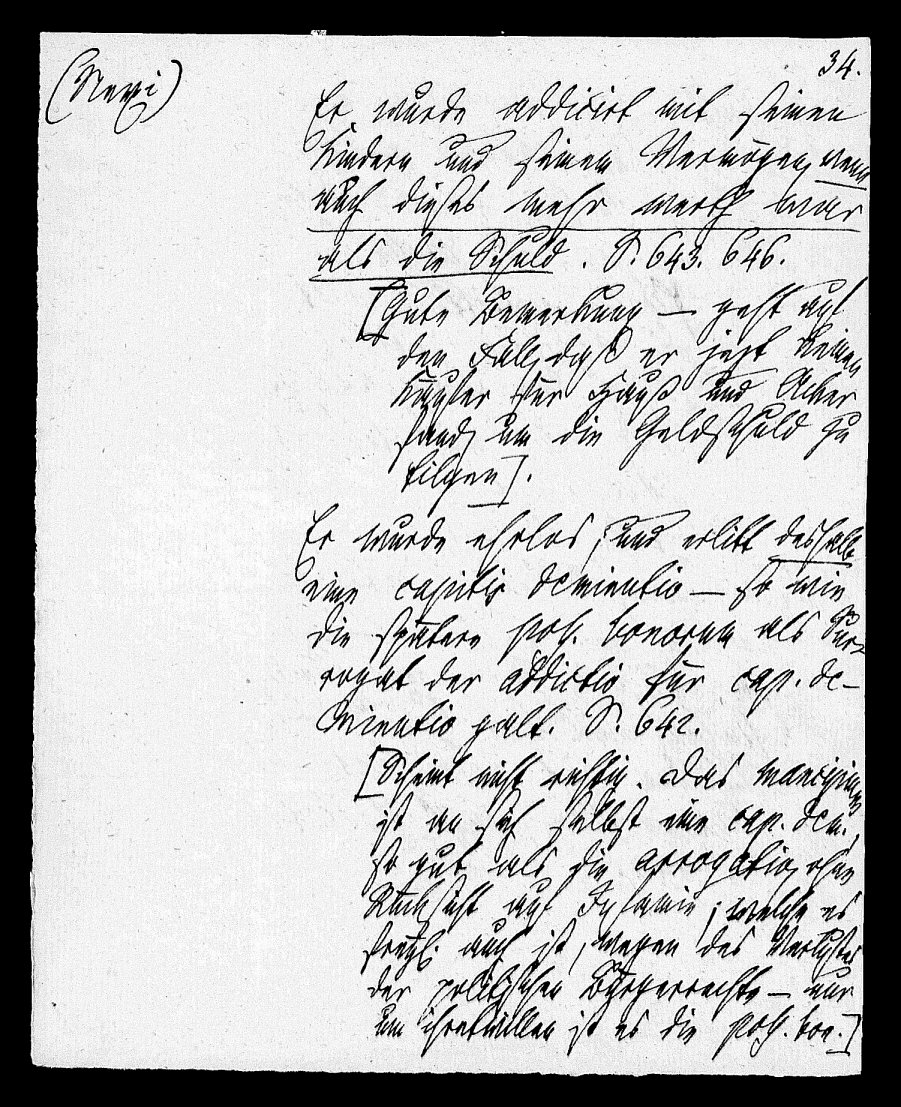 34.
(Nexi)
Er wurde addicirt mit seinen
Kindern und seinem Vermögen, wenn
auch dieses mehr werth war
als die Schuld. S. 643. 646.
[Gute Bemerkung — geht auf
den Fall, daß er jetzt keinen
Käufer für Hauß und Acker
fand, um die Geldschuld zu
tilgen].
Er wurde ehrlos, und erlitt deshalb
eine capitis deminutio — so wie
die spätere poss. bonorum als Sur-
rogat der addictio für cap. de-
minutio galt. S. 642.
[Scheint nicht richtig. Das mancipium
ist an sich selbst eine cap. dem.,
so gut als die arrogatio, ohne
Rücksicht auf Infamie, welche es
freyl. auch ist, wegen des Verlustes
der politischen Bürgerrechte — nur
um ihretwillen ist es die poss. bon.]